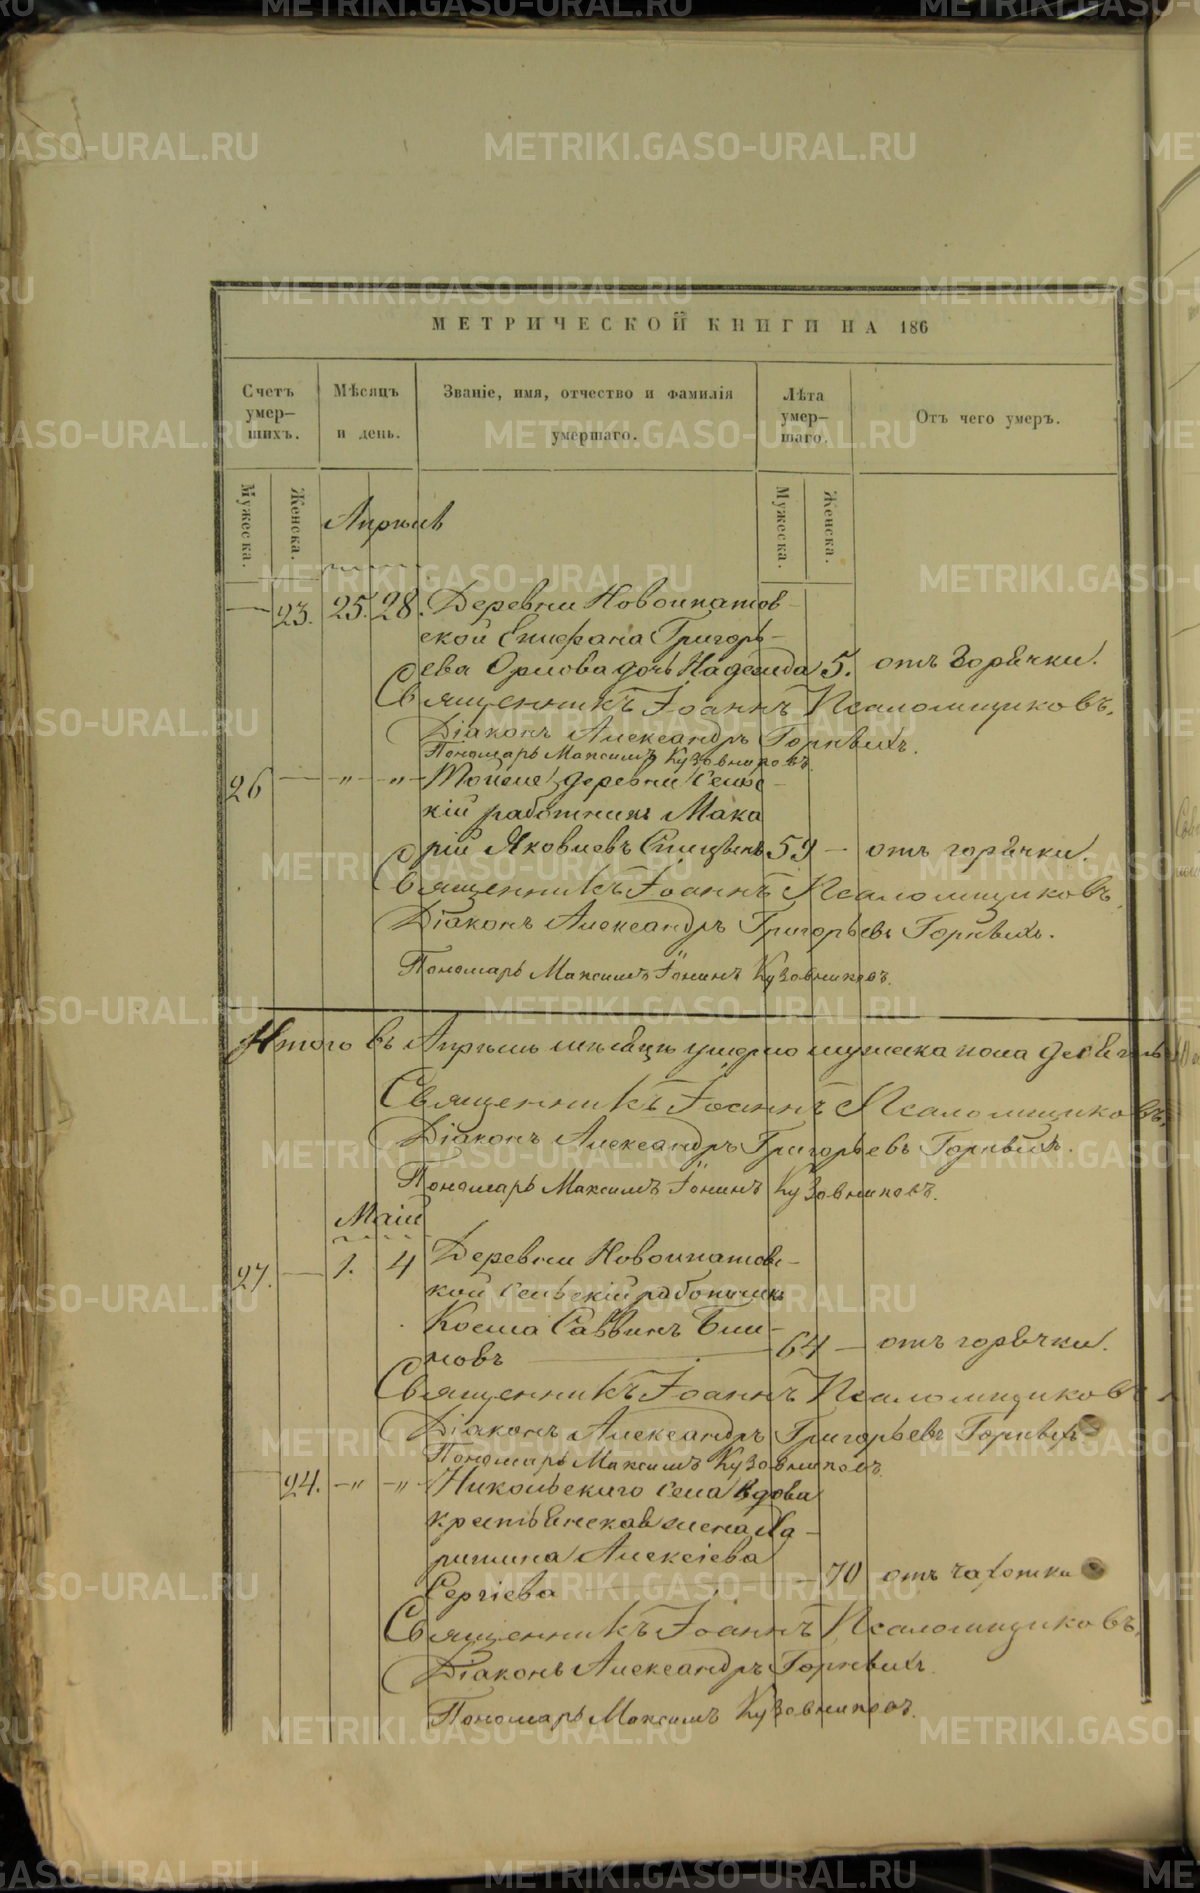 МЕТРИЧЕСКОЙ КНИГИ НА 186
Счетъ умер-шихъ.
Мѣсяцъ и день.
Званіе, имя, отчество и фамилія умершаго.
Лѣта умер-шаго.
Отъ чего умеръ.
Мужеска.
Женска.
Мужеска.
Женска.
Апрѣль
— 23. 25. 28. Деревни Новоипатов-
ской Епифана Григорь-
ева Орлова дочь Надежда 5. отъ горячки.
Священникъ Іоаннъ Псаломщиковъ.
Діаконъ Александръ Горныхъ.
Пономарь Максимъ Кузовниковъ
26 — " — " — Тойже деревни Сельс-
кій работникъ Мака
рій Яковлевъ 59 — отъ горячки.
Священникъ Іоаннъ Псаломщиковъ.
Діаконъ Александръ Григорьевъ Горныхъ.
Пономарь Максимъ Іонинъ Кузовниковъ.
Итого въ Апрѣлѣ мѣсяцѣ умерло мужеска пола девять
Священникъ Іоаннъ Псаломщиковъ.
Діаконъ Александръ Григорьевъ Горныхъ.
Пономарь Максимъ Іонинъ Кузовниковъ.
Маій
27. — 1. 4 Деревни Новоипатовс-
кой Сельскій работникъ
Косма Саввинъ Бли-
новъ — 64 — отъ горячки.
Священникъ Іоаннъ Псаломщиковъ
Діаконъ Александръ Григорьевъ Горныхъ
Пономарь Максимъ Кузовниковъ
24. — " — " — Никольскаго села вдова
крестьянская жена Ха-
ритина Алексіева
Сергіева — 70 отъ чахотки
Священникъ Іоаннъ Псаломщиковъ.
Діаконъ Александръ Горныхъ.
Пономарь Максимъ Кузовниковъ.
METRIKI.GASO-URAL.RU